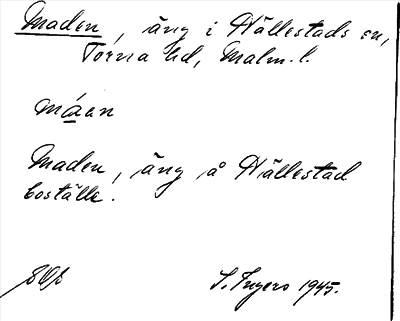 Maden, äng i Hällestads sn,
Torna hd, Malm. l.
måen
Maden, äng å Hällestad
boställe.
S. Ingers 1945.